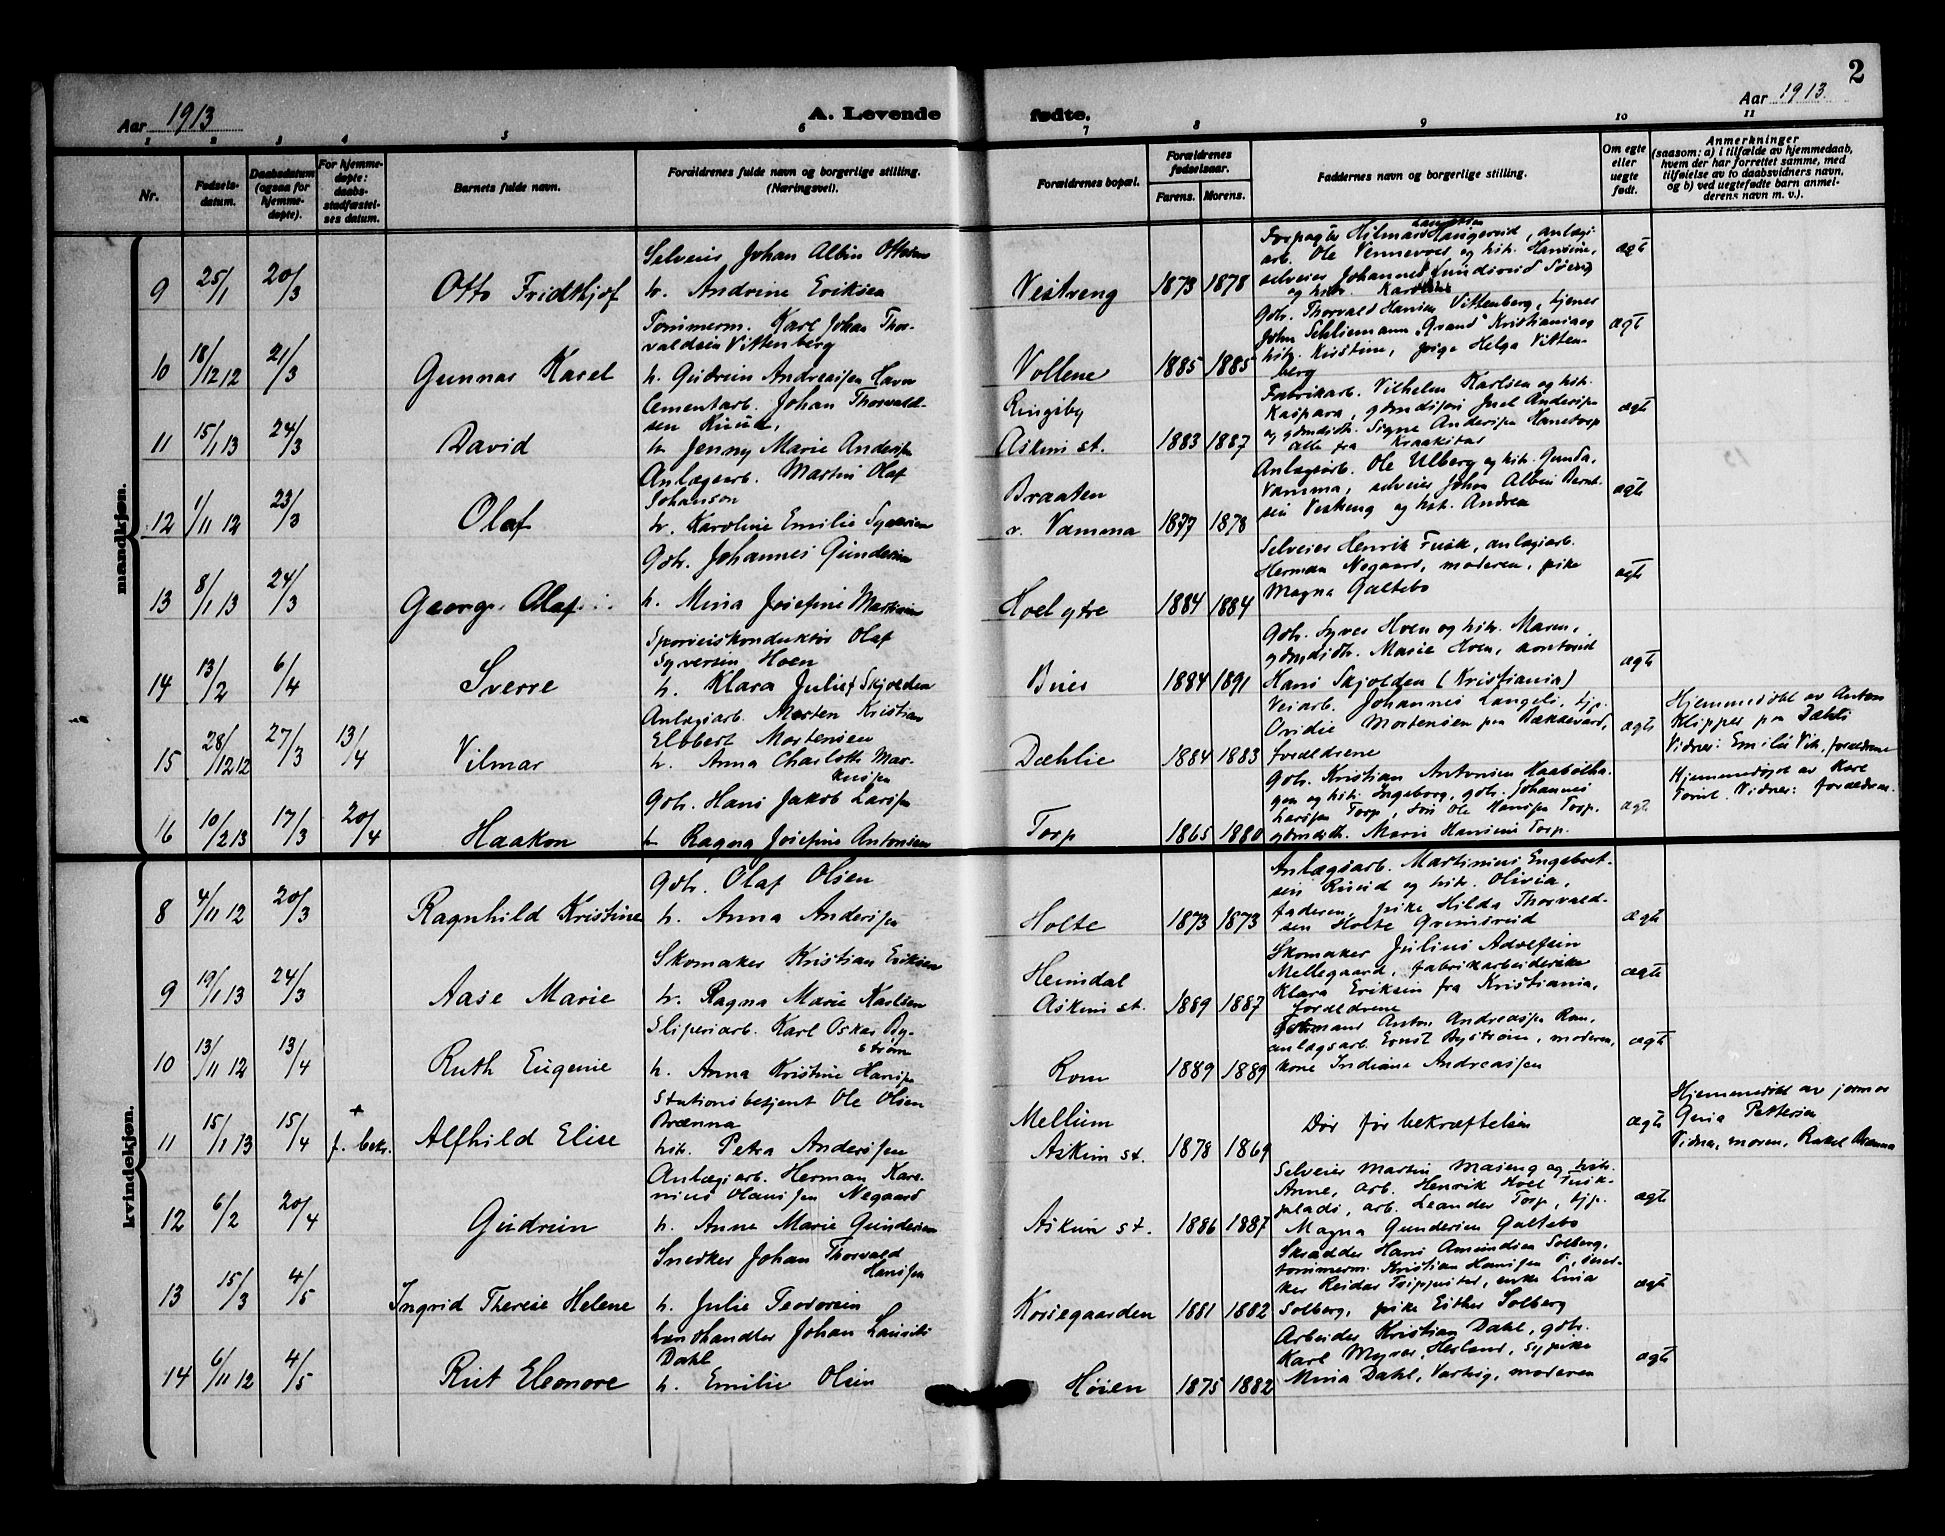 Aar 1913
A. Levende
fødte.
Aar 1913.
2
1 2 3 4 5 6 7 8 9 10 11
Nr.
Fødsels-
datum.
Daabsdatum
(ogsaa for
hjemme-
døpte).
For hjemme-
døpte:
daabs-
stadfæstel-
ses datum.
Barnets fulde navn.
Forældrenes fulde navn og borgerlige stilling.
(Næringsvei).
Forældrenes bopæl.
Forældrenes
fødselsaar.
Farens. Morens.
Faddernes navn og borgerlige stilling.
Om egte
eller
uegte
født.
Anmerkninger
(saasom: a) i tilfælde av hjemmedaab,
hvem der har forrettet samme, med
tilføielse av to daabsvidners navn,
og b) ved uegtefødte barn anmel-
derens navn m. v.).
mandkjøn.
9 25/1 20/3 Otto Fridthjof
Selveier Johan Albin Ottesen
h. Andrine Eriksen
Vestreng 1873 1878
Forpagter Hilmar Haugerud, anlægs-
arb. Ole Vennevoe og hstr. Hansine,
selveier Johannes
og hstr.
ægt
10 18/12 12 21/3 Gunnar Karel
Tømmerm. Karl Johan Thor-
valdsen Vittenberg
h. Gudrun Andreassen Havn
Vollene 1885 1885
Gdbr. Thorvald Hansen Vittenberg, tjener
John Schliemann "Grand" Kristiania og
hstr. Kristine, pige Helga Vitten-
berg
ægt
11 15/1 13 24/3 David
Cementarb. Johan Thorvald-
sen Ruud,
h. Jenny Marie Andersen
Ringsby
Askim st. 1883 1887
Fabrikarb. Vilhelm Karlsen og hstr.
Kaspara, gdmdssøn Juel Andersen
og gdmdsdtr. Signe Andersen Hanstorp
alle fra Kraakstad
ægt
12 1/11 12 23/3 Olaf
Anlægsarb. Martin Olaf
Johanson
h. Karoline Emilie Syversen
Braaten
v. Vamma 1877 1878
Anlægsarb. Ole Ulberg og hstr. Gunda,
Vamma, selveier Johan Albin Bernt-
sen Vestreng og hstr. Andrea
ægt
13 8/1 13 24/3 Georg Olaf
Gdbr. Johannes Gundersen
h. Mina Josefine Martinsen
Hoel ytre 1884 1884
Selveier Henrik Fusk, anlægsarb.
Herman Negaard, moderen, pike
Magna Galtebo
ægt
14 13/2 6/4 Sverre
Sporveiskonduktør Olaf
Syversen Hoen
h. Klara Julie Skjolden
1884 1891
Gdbr. Syver Hoen og hstr. Maren,
gdmdsdtr. Marie Hoen,
Hans Skjolden (Kristiania)
ægt
15 28/12 12 27/3 13/4 Vilmar
Anlægsarb. Morten Kristian
Elbbert Mortensen
h. Anna Charlotte Mar-
kussen
Dæhlie 1884 1883
Veiarb. Johannes Langeli, tjp.
Ovidie Mortensen paa Bækkevard,
forældrene
ægt
Hjemmedøbt av Anton
Klipper paa Dæhli
Vidner: Emilie Vik, forældrene
16 10/2 13 17/3 20/4 Haakon
Gdbr. Hans Jakob Larsen
h. Ragna Josefine Antonsen
Torp 1865 1880
Gdbr. Kristian Antonsen Haabølha-
gen og hstr. Ingeborg, gdbr. Johannes
Larsen Torp, søn Ole Hanssen Torp,
gdmdsdtr. Marie Hansine Torp.
ægt
Hjemmedøpt av Kare
Tomt. Vidner: forældrene
kvindekjøn.
8 4/11 12 20/3 Ragnhild Kristine
Gdbr. Olaf Olsen
h. Anna Anderssen
Holte 1873 1873
Anlægsarb. Martinius Engebret-
sen Ruud og hstr. Olivia,
faderen, pike Hilda Thorvald-
sen Holte Grimsrud
ægt
9 19/1 13 24/3 Aase Marie
Skomaker Kristian Eriksen
h. Ragna Marie Karlsen
Heimdal
Askim st. 1889 1887
Skomaker Julius Adolfsen
Mellegaard, fabrikarbeiderske
Klara Eriksen fra Kristiania,
forældrene
ægt
10 13/11 12 13/4 Ruth Eugenie
Sliperiarb. Karl Oskar By-
strøm
h. Anna Kristine Hanssen
Rom 1889 1889
Formand Anton Andreassen Rom,
anlægsarb. Ernst Bystrøm, moderen,
kone Indiane Andreassen
ægt
11 15/1 13 15/4 + f. bekr. Alfhild Elise
Stationsbetjent Ole Olsen
Brænna
hstr. Petra Anderssen
Mellum
Askim st. 1878 1869
Dør før bekræftelsen
ægt
Hjemmedøbt av jormor
Gina Pettersen
Vidner, moren, Rakel Brænna
12 6/2 20/4 Gudrun
Anlægsarb. Herman Kare-
nius Olaussen Negaard
h. Anne Marie Gundersen
Askim st. 1886 1887
Selveier Martin Maseng og hstr.
Anne, arb. Henrik Hoel Fusk-
plads, arb. Leander Torp, tjp.
Magna Gundersen Galtebo
ægt
13 15/3 4/5 Ingrid Therese Helene
Snedker Johan Thorvald
Hanssen
h. Julie Teodorsen
Korsegaarden 1881 1882
Skrædder Hans Amundsen Solberg,
tømmerm. Kristian Hanssen , sned-
ker Reidar , enke Lina
Solberg, pike Esther Solberg
ægt
14 6/11 12 4/5 Rut Eleonore
Landhandler Johan Lauritz
Dahl
h. Emilie Olsen
Høien 1875 1882
Arbeider Kristian Dahl, gdbr.
Karl Myrer, Herland, sypike
Mina Dahl, Vartvig, moderen
ægt